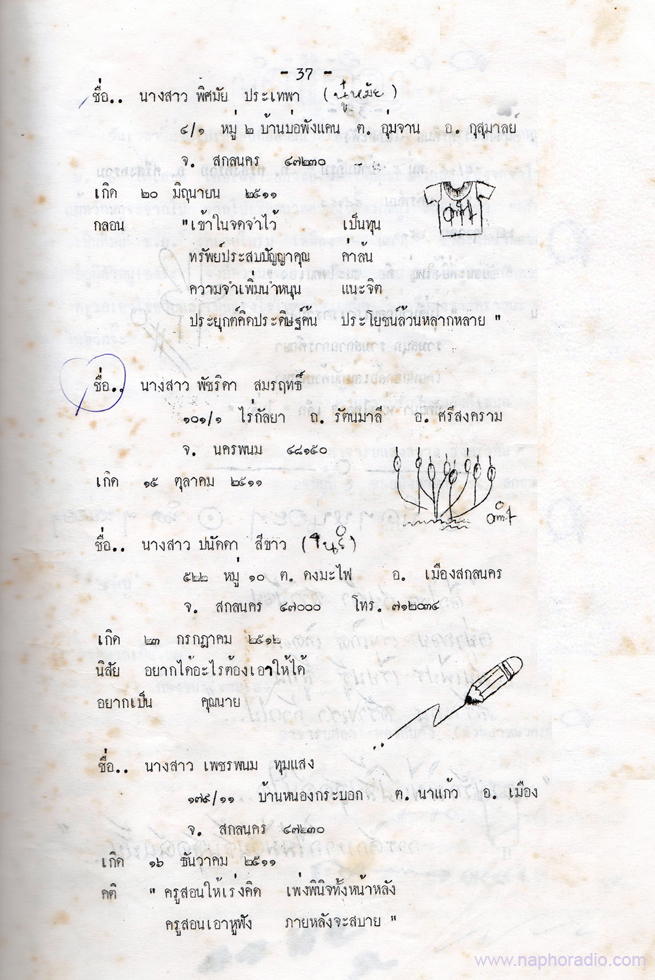 - 37 -
ชื่อ.. นางสาว พิศมัย ประเทพา (นู๋หมัย)
๔/๑ หมู่ ๒ บ้านบ่อพังแคน ต. อุ่มจาน อ. กุสุมาลย์
จ. สกลนคร ๔๗๒๓๐
เกิด ๒๐ มิถุนายน ๒๕๑๑
กลอน "เข้าในจดจำไว้ เป็นทุน
ทรัพย์ประสบปัญญาคุณ ค่าล้น
ความจำเพิ่มนำหนุน แนะจิต
ประยุกต์คิดประดิษฐ์ค้น ประโยชน์ล้วนหลากหลาย "
ชื่อ.. นางสาว พัชริดา สมรฤทธิ์
๑๐๑/๑ ไร่กัลยา ถ. รัตนมาลี อ. ศรีสงคราม
จ. นครพนม ๔๘๑๕๐
เกิด ๑๕ ตุลาคม ๒๕๑๑
ชื่อ.. นางสาว ปนัดดา สีขาว
๕๒๒ หมู่ ๑๐ ต. ดงมะไฟ อ. เมืองสกลนคร
จ. สกลนคร ๔๗๐๐๐ โทร. ๗๑๒๐๓๔
เกิด ๒๓ กรกฎาคม ๒๕๑๒
นิสัย อยากได้อะไรต้องเอาให้ได้
อยากเป็น คุณนาย
ชื่อ.. นางสาว เพชรพนม ทุมแสง
๑๗๙/๑๑ บ้านหนองกระบอก ต. นาแก้ว อ. เมือง
จ. สกลนคร ๔๗๒๓๐
เกิด ๑๖ ธันวาคม ๒๕๑๑
คติ " ครูสอนให้เร่งคิด เพ่งพินิจทั้งหน้าหลัง
ครูสอนเอาหูฟัง ภายหลังจะสบาย "
www.naphoradio.com